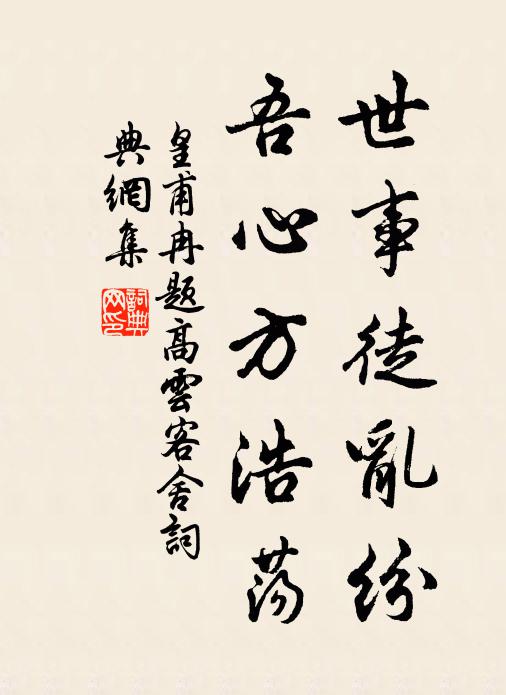 世事徒亂紛
吾心方浩荡
皇甫冉題高雲客舍詞
典網集
詞典
网印